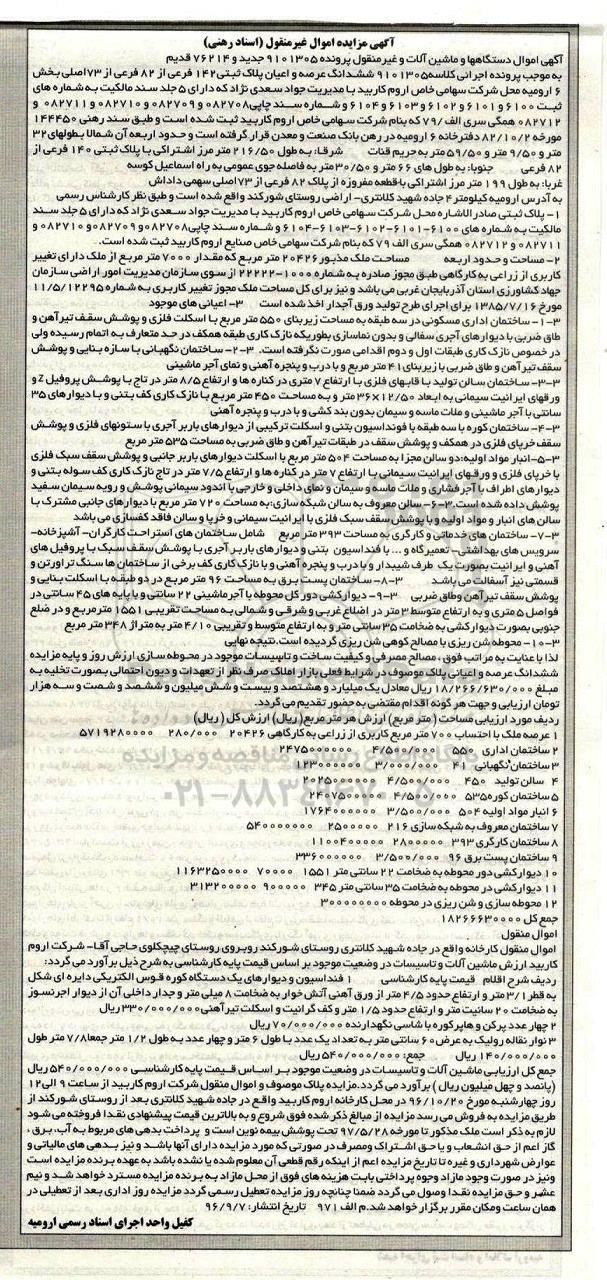 آگهی مزایده اموال غیرمنقول (اسناد رهنی)
آگهی اموال دستگاهها و ماشین آلات و غیرمنقول پرونده ۹۱۰۱۳۰۵ جدید و ۷۶۲۱۴ قدیم
به موجب پرونده اجرائی کلاسه ۹۱۰۱۳۰۵ ششدانگ عرصه و اعیان پلاک ثبتی ۱۴۲ فرعی از ۸۲ فرعی از ۷۳ اصلی بخش
۶ ارومیه محل شرکت سهامی خاص اروم کاربید با مدیریت جواد سعدی نژاد که دارای ۵ جلد سند مالکیت به شماره های
ثبت ۶۱۰۰ و ۶۱۰۱ و ۶۱۰۲ و ۶۱۰۳ و ۶۱۰۴ و شماره سند چاپی ۰۸۲۷۰۸ و ۰۸۲۷۰۹ و ۰۸۲۷۱۰ و ۰۸۲۷۱۱ و
۰۸۲۷۱۲ همگی سری الف /۷۹ که بنام شرکت سهامی خاص اروم کاربید ثبت شده است و طبق سند رهنی ۱۴۴۴۵۰
مورخه ۸۲/۱۰/۲ دفترخانه ۶ ارومیه در رهن بانک صنعت و معدن قرار گرفته است و حدود اربعه آن شمالا بطولهای ۳۲
متر و ۹/۵۰ متر و ۵۹/۵۰ متر به حریم قنات شرقا: به طول ۲۱۶/۵۰ متر مرز اشتراکی با پلاک ثبتی ۱۴۰ فرعی از
۸۲ فرعی جنوبا: به طول های ۶۶ متر و ۳۰/۵۰ متر به فاصله جوی عمومی به راه اسماعیل کوسه
غربا: به طول ۱۹۹ متر مرز اشتراکی با قطعه مفروزه از پلاک ۸۲ فرعی از ۷۳ اصلی سهمی داداش
به آدرس ارومیه کیلومتر ۴ جاده شهید کلانتری- اراضی روستای شورکند واقع شده است و طبق نظر کارشناس رسمی
۱- پلاک ثبتی صادر الاشاره محل شرکت سهامی خاص اروم کاربید با مدیریت جواد سعدی نژاد که دارای ۵ جلد سند
مالکیت به شماره های ۶۱۰۰-۶۱۰۱-۶۱۰۲-۶۱۰۳-۶۱۰۴ و شماره سند چاپی ۰۸۲۷۰۸ و ۰۸۲۷۰۹ و ۰۸۲۷۱۰ و
۰۸۲۷۱۱ و ۰۸۲۷۱۲ همگی سری الف ۷۹ که بنام شرکت سهامی خاص صنایع اروم کاربید ثبت شده است.
۲- مساحت و حدود اربعه مساحت ملک مذبور ۲۰۴۲۶ متر مربع که مقدار ۷۰۰۰ متر مربع از ملک دارای تغییر
کاربری از زراعی به کارگاهی طبق مجوز صادره به شماره ۱۰۰۰-۲۲۲۲۲ از سوی سازمان مدیریت امور اراضی سازمان
جهاد کشاورزی استان آذربایجان غربی می باشد و نیز برای کل مساحت ملک مجوز تغییر کاربری به شماره ۱۱/۵/۱۲۲۹۵
مورخ ۱۳۸۵/۷/۱۶ برای اجرای طرح تولید ورق آجدار اخذ شده است ۳- اعیانی های موجود
۳-۱- ساختمان اداری مسکونی در سه طبقه به مساحت زیربنای ۵۵۰ متر مربع با اسکلت فلزی و پوشش سقف تیرآهن و
طاق ضربی با دیوارهای آجری سفالی و بدون نماسازی بطوریکه نازک کاری طبقه همکف در حد متعارف به اتمام رسیده ولی
در خصوص نازک کاری طبقات اول و دوم اقدامی صورت نگرفته است. ۳-۲- ساختمان نگهبانی با سازه بنایی و پوشش
سقف تیرآهن و طاق ضربی با زیربنای ۴۱ متر مربع و با درب و پنجره آهنی و نمای آجر ماشینی
۳-۳- ساختمان سالن تولید با قابهای فلزی با ارتفاع ۷ متری در کناره ها و ارتفاع ۸/۵ متر در تاج با پوشش پروفیل Z و
ورقهای ایرانیت سیمانی به ابعاد ۱۲/۵۰×۳۶ متر و به مساحت ۴۵۰ متر مربع با نازک کاری کف بتنی و با دیوارهای ۳۵
سانتی با آجر ماشینی و ملات ماسه و سیمان بدون بند کشی و با درب و پنجره آهنی
۳-۴- ساختمان کوره با سه طبقه با فونداسیون بتنی و اسکلت ترکیبی از دیوارهای باربر آجری با ستونهای فلزی و پوشش
سقف خرپای فلزی در همکف و پوشش سقف در طبقات تیرآهن و طاق ضربی به مساحت ۵۳۵ متر مربع
۳-۵- انبار مواد اولیه: دو سالن مجزا به مساحت ۵۰۴ متر مربع با اسکلت دیوارهای باربر جانبی و پوشش سقف سبک فلزی
با خرپای فلزی و ورقهای ایرانیت سیمانی با ارتفاع ۷ متر در کناره ها و ارتفاع ۷/۵ متر در تاج نازک کاری کف سوله بتنی و
دیوارهای اطراف با آجرفشاری و ملات ماسه و سیمان و نمای داخلی و خارجی با اندود سیمانی پوشش و رویه سیمان سفید
پوشش داده شده است ۳-۶- سالن معروف به سالن شبکه سازی: به مساحت ۷۲۰ متر مربع با دیوارهای جانبی مشترک با
سالن های انبار و مواد اولیه و با پوشش سقف سبک فلزی با ایرانیت سیمانی و خرپا و سالن فاقد کفسازی می باشد
۳-۷- ساختمان های خدماتی و کارگری به مساحت ۳۹۳ متر مربع شامل ساختمان های استراحت کارگران- آشپزخانه-
سرویس های بهداشتی- تعمیرگاه و ... با فنداسیون بتنی و دیوارهای باربر آجری با پوشش سقف سبک با پروفیل های
آهنی و ایرانیت بصورت یک طرف شیبدار و با درب و پنجره آهنی و با نازک کاری کف برخی از ساختمان ها سنگ تراورتن و
قسمتی نیز آسفالت می باشد ۳-۸- ساختمان پست برق به مساحت ۹۶ متر مربع در دو طبقه با اسکلت بنایی و
پوشش سقف تیرآهن وطاق ضربی ۳-۹- دیوارکشی دور کل محوطه با آجرماشینی ۲۲ سانتی و با پایه های ۴۵ سانتی در
فواصل ۵ متری و به ارتفاع متوسط ۳ متر در اضلاع غربی و شرقی و شمالی به مساحت تقریبی ۱۵۵۱ مترمربع و در ضلع
جنوبی بصورت دیوارکشی به ضخامت ۳۵ سانتی متر و به ارتفاع متوسط و تقریبی ۴/۱۰ متر به متراژ ۳۴۸ متر مربع
۳-۱۰- محوطه شن ریزی با مصالح کوهی شن ریزی گردیده است. نتیجه نهایی
لذا با عنایه به مراتب فوق، مصالح مصرفی و کیفیت ساخت و تاسیسات موجود در محوطه سازی ارزش روز و پایه مزایده
ششدانگ عرصه و اعیانی پلاک موصوف در شرایط فعلی بازار املاک صرف نظر از تعهدات و دیون احتمالی بصورت تخلیه به
مبلغ ۱۸/۲۶۶/۶۳۰/۰۰۰ ریال معادل یک میلیارد و هشتصد و بیست و شش میلیون و ششصد و شصت و سه هزار
تومان ارزیابی و جهت هر گونه اقدام مقتضی به حضور تقدیم می گردد.
ردیف مورد ارزیابی مساحت ( متر مربع) ارزش هر متر مربع( ریال) ارزش کل ( ریال)
۱ عرصه ملک با احتساب ۷۰۰۰ متر مربع کاربری از زراعی به کارگاهی ۲۰۴۲۶ ۲۸۰/۰۰۰ ۵۷۱۹۲۸۰۰۰۰
۲ ساختمان اداری ۵۵۰ ۴/۵۰۰/۰۰۰ ۲۴۷۵۰۰۰۰۰۰
۳ ساختمان نگهبانی ۴۱ ۳/۰۰۰/۰۰۰ ۱۲۳۰۰۰۰۰۰
۴ سالن تولید ۴۵۰ ۴/۵۰۰/۰۰۰ ۲۰۲۵۰۰۰۰۰۰
۵ ساختمان کوره ۵۳۵ ۴/۵۰۰/۰۰۰ ۲۴۰۷۵۰۰۰۰۰
۶ انبار مواد اولیه ۵۰۴ ۳/۵۰۰/۰۰۰ ۱۷۶۴۰۰۰۰۰۰
۷ ساختمان معروف به شبکه سازی ۲۱۶ ۲۵۰۰۰۰۰ ۵۴۰۰۰۰۰۰۰
۸ ساختمان کارگری ۳۹۳ ۲۸۰۰۰۰۰ ۱۱۰۰۴۰۰۰۰۰
۹ ساختمان پست برق ۹۶ ۳/۵۰۰/۰۰۰ ۳۳۶۰۰۰۰۰۰
۱۰ دیوارکشی دور محوطه به ضخامت ۲۲ سانتی متر ۱۵۵۱ ۷۰۰۰۰ ۱۱۶۳۲۵۰۰۰۰
۱۱ دیوارکشی در محوطه به ضخامت ۳۵ سانتی متر ۳۴۵ ۹۰۰۰۰۰ ۳۱۳۲۰۰۰۰۰
۱۲ محوطه سازی و شن ریزی در محوطه ۳۰۰۰۰۰۰۰۰
جمع کل ۱۸۲۶۶۶۳۰۰۰۰
اموال منقول
اموال منقول کارخانه واقع در جاده شهید کلانتری روستای شورکند روبروی روستای چیچکلوی حاجی آقا- شرکت اروم
کاربید ارزش ماشین آلات و تاسیسات در وضعیت موجود بر اساس قیمت پایه کارشناسی به شرح ذیل برآورد می گردد:
ردیف شرح اقلام قیمت پایه کارشناسی ۱ فنداسیون و دیوارهای یک دستگاه کوره قوس الکتریکی دایره ای شکل
به قطر ۳/۱ متر و ارتفاع حدود ۴/۵ متر از ورق آهنی آتش خوار به ضخامت ۸ میلی متر و جدار داخلی آن از دیوار اجرنسوز
به ضخامت ۲۰ سانیت متر و ارتفاع حدود ۱/۵ متر و کف گرانیت و اسکلت تیرآهنی ۳۳۰/۰۰۰/۰۰۰ ریال
۲ چهار عدد پرکن و هاپرکوره با شاسی نگهدارنده ۷۰/۰۰۰/۰۰۰ ریال
۳ نوار نقاله رولیک به عرض ۶۰ سانتی متر به تعداد یک عدد با طول ۶ متر و چهار عدد به طول ۱/۲ متر جمعا ۷/۸ متر طول
۱۴۰/۰۰۰/۰۰۰ ریال جمع: ۵۴۰/۰۰۰/۰۰۰ ریال
جمع کل ارزیابی ماشین آلات و تاسیسات در وضعیت موجود بر اساس قیمت پایه کارشناسی ۵۴۰/۰۰۰/۰۰۰ ریال
(پانصد و چهل میلیون ریال ) برآورد می گردد. مزایده پلاک موصوف و اموال منقول شرکت اروم کاربید از ساعت ۹ الی ۱۲
روز چهارشنبه مورخ ۹۶/۱۰/۲۰ در محل کارخانه اروم کاربید واقع در جاده شهید کلانتری بعد از روستای شورکند از
طریق مزایده به فروش می رسد مزایده از مبالغ ذکر شده فوق شروع و به بالاترین قیمت پیشنهادی نقدا فروخته می شود
لازم به ذکر است ملک مذکور تا مورخه ۹۷/۵/۲۸ تحت پوشش بیمه نوین است و پرداخت بدهی های مربوط به آب، برق،
گاز اعم از حق انشعاب و یا حق اشتراک ومصرف در صورتی که مورد مزایده دارای آنها باشد و نیز بدهی های مالیاتی و
عوارض شهرداری و غیره تا تاریخ مزایده اعم از اینکه رقم قطعی آن معلوم شده یا نشده باشد به عهده برنده مزایده است
ونیز در صورت وجود مازاد وجوه پرداختی بابت هزینه های فوق از محل مازاد به برنده مزایده مسترد خواهد شد و نیم
عشر و حق مزایده نقدا وصول می گردد ضمنا چنانچه روز مزایده تعطیل رسمی گردد مزایده روز اداری بعد از تعطیلی در
همان ساعت ومکان مقرر برگزار خواهد شد.م الف ۹۷۱ تاریخ انتشار: ۹۶/۹/۷
کفیل واحد اجرای اسناد رسمی ارومیه